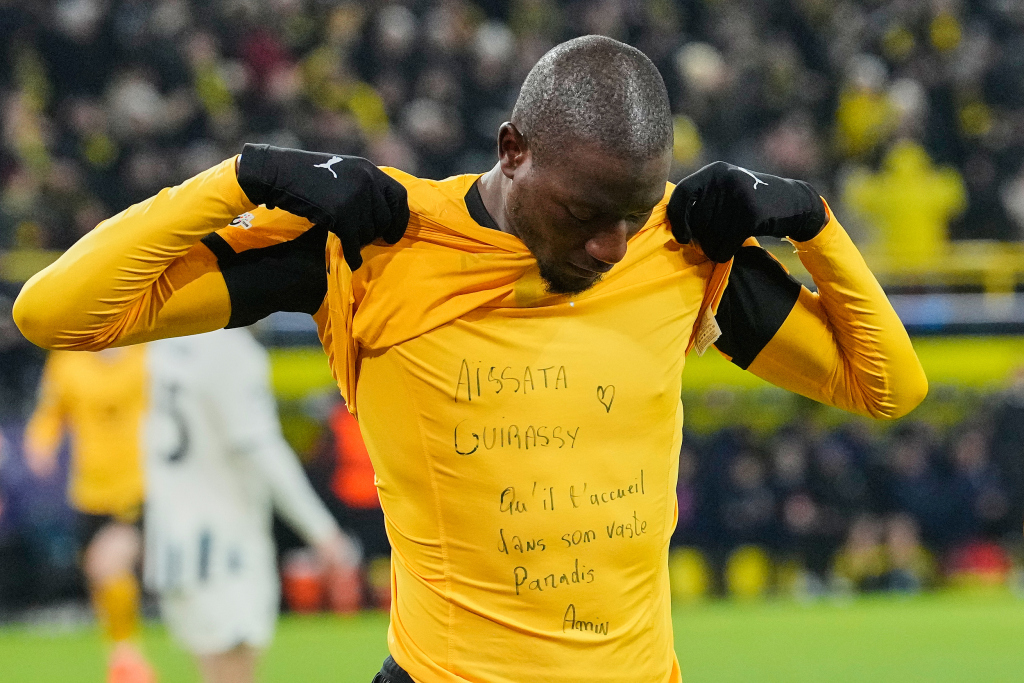 AÏSSATA
GUIRASSY
Qu'il t'accueil
dans son vaste
Paradis
Amin
3